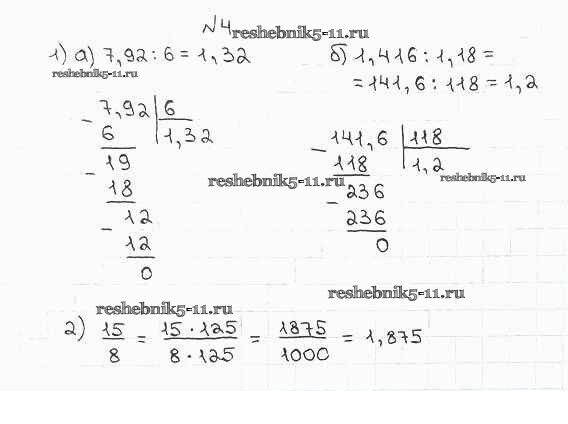 №4 reshebnik5-11.ru
1) а) 7,92 : 6 = 1,32
б) 1,416 : 1,18 =
reshebnik5-11.ru
= 141,6 : 118 = 1,2
- 7,92 | 6
6 | 1,32
- 19
18
- 12
12
0
- 141,6 | 118
118 | 1,2
reshebnik5-11.ru
reshebnik5-11.ru
- 236
236
0
reshebnik5-11.ru
reshebnik5-11.ru
2) 15/8 = 15·125/8·125 = 1875/1000 = 1,875